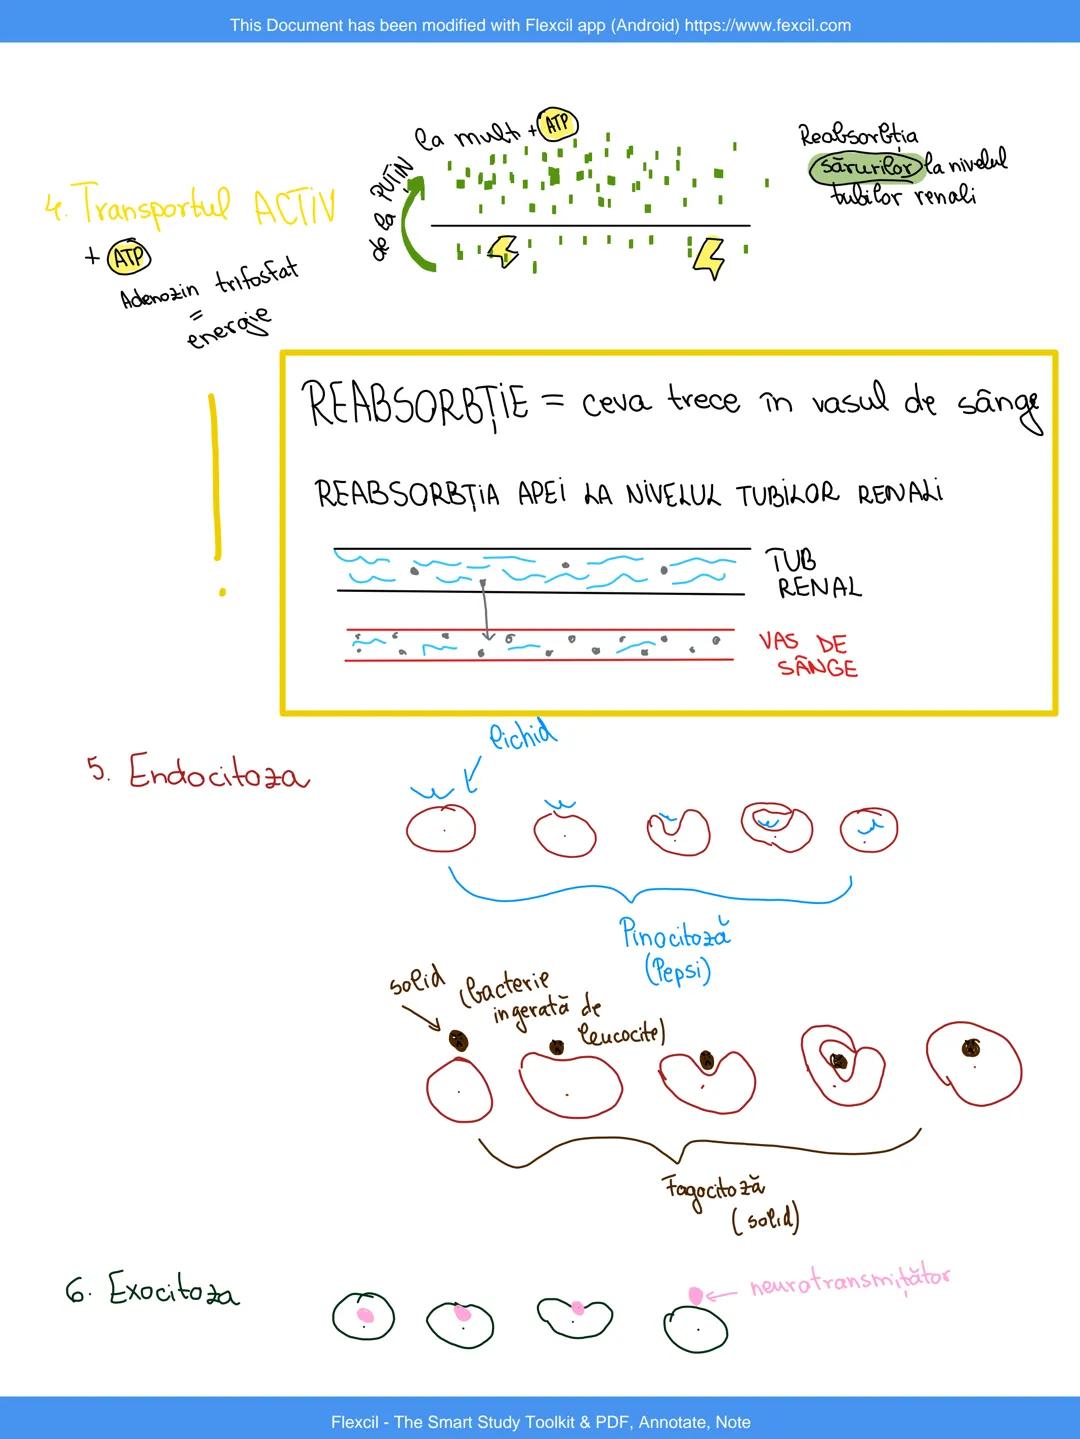 This Document has been modified with Flexcil app (Android) https://www.fexcil.com
4. Transportul ACTIV
+ ATP
Adenozin trifosfat
=
energie
de la PUȚIN la mult + ATP
Reabsorbția
sărurilor la nivelul
tubilor renali
!
REABSORBȚIE = ceva trece în vasul de sânge
REABSORBȚIA APEI LA NIVELUL TUBILOR RENALI
TUB
RENAL
VAS DE
SÂNGE
5. Endocitoza
lichid
Pinocitoză
(Pepsi)
solid
(bacterie
ingerată de
leucocite)
Fagocitoză
(solid)
6. Exocitoza
neurotransmițător
Flexcil - The Smart Study Toolkit & PDF, Annotate, Note